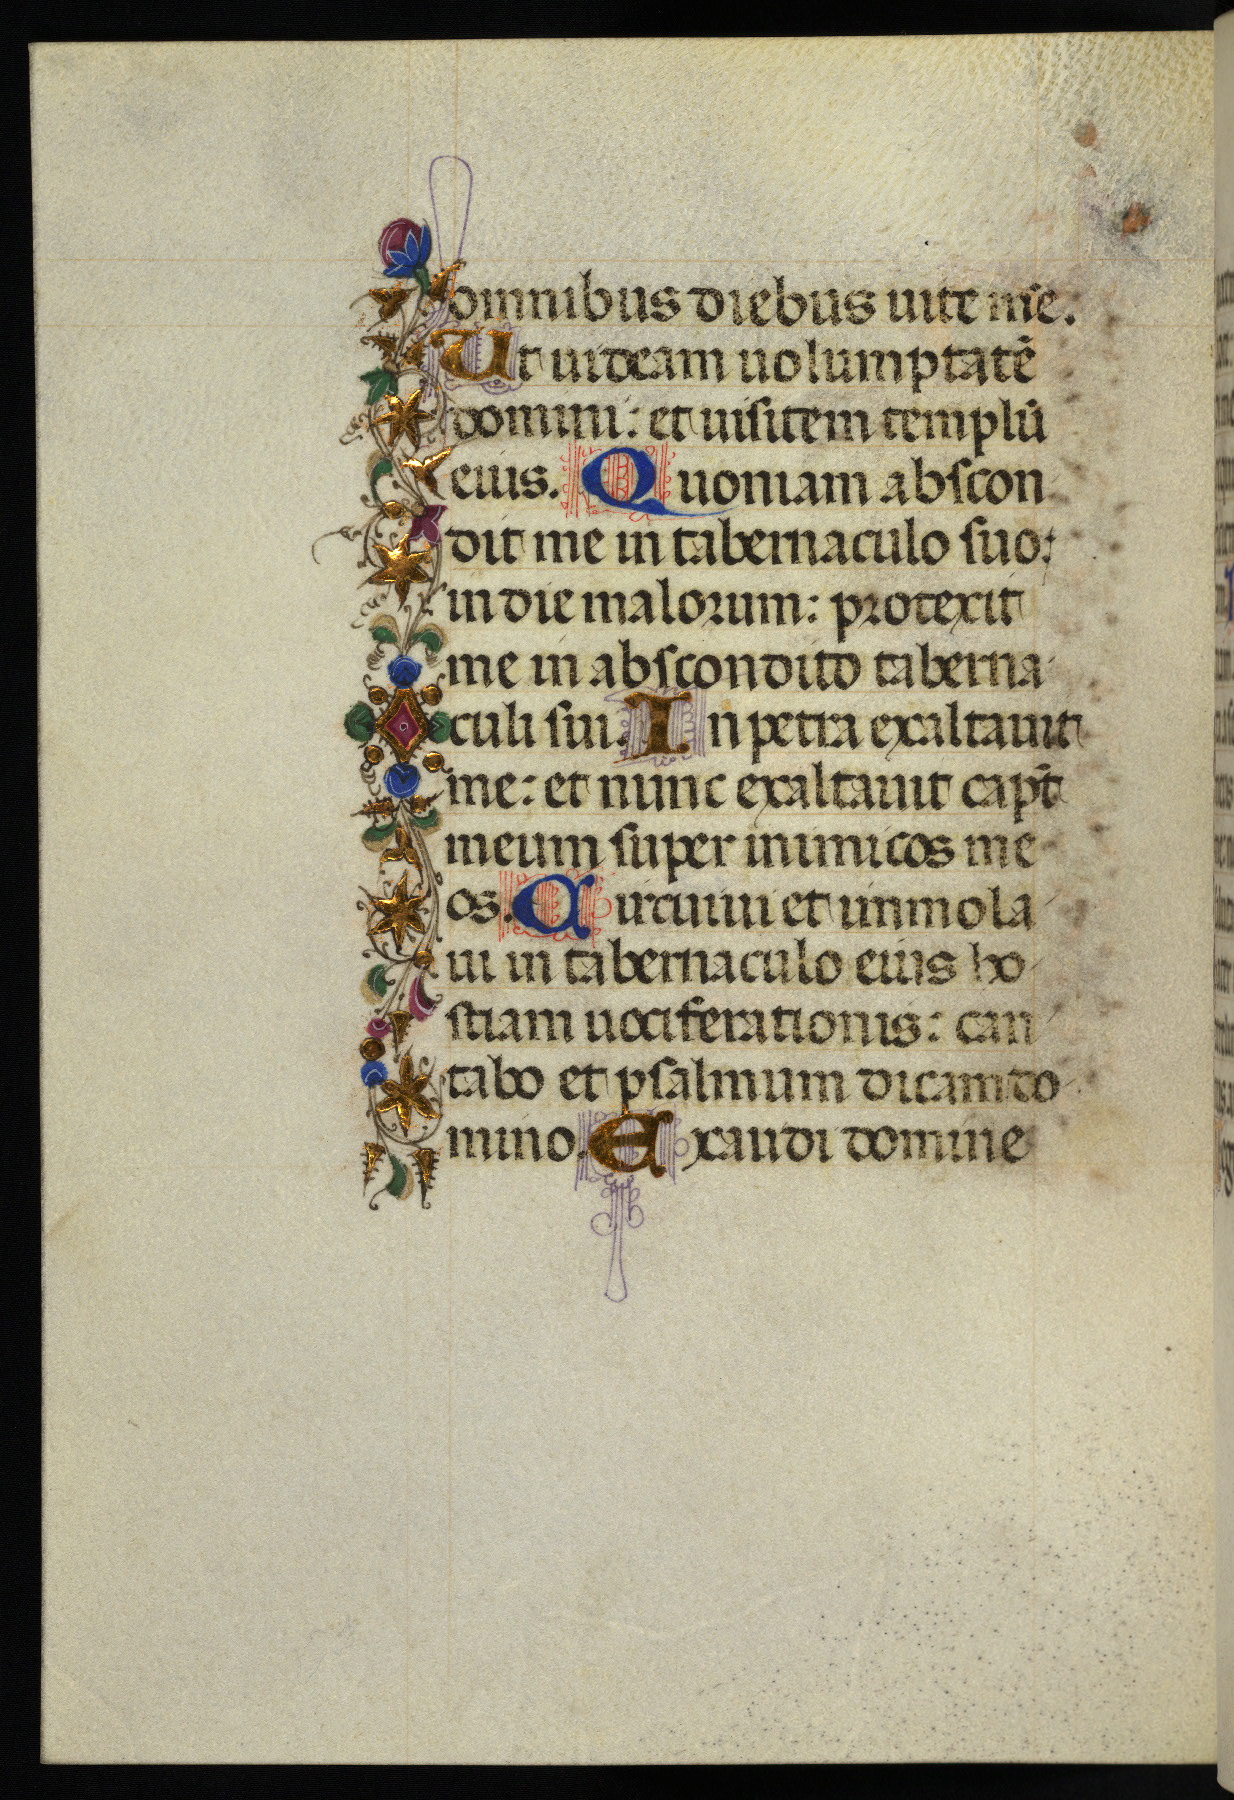 omnibus diebus uite mee.
Ut uideam uolumptatē
domini: et uisitem templū
eius. Quoniam abscon
dit me in tabernaculo suo:
in die malorum: protexit
me in abscondito taberna
culi sui. In petra exaltauit
me: et nunc exaltauit capt̄
meum super inimicos me
os. Circuiui et immola
ui in tabernaculo eius ho
stiam uociferationis: can
tabo et psalmum dicam do
mino. Exaudi domine